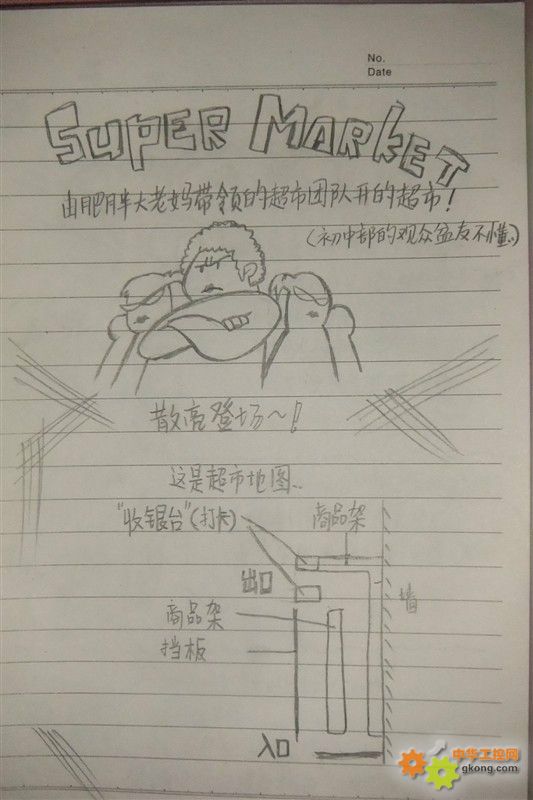 No.
Date
SUPER MARKET
由肥胖大老妈带领的超市团队开的超市！
(初中部的观众盆友不懂..)
散亮登场~！
这是超市地图..
"收银台"(打卡)
商品架
出口
墙
商品架
挡板
入口
中华工控网
gkong.com